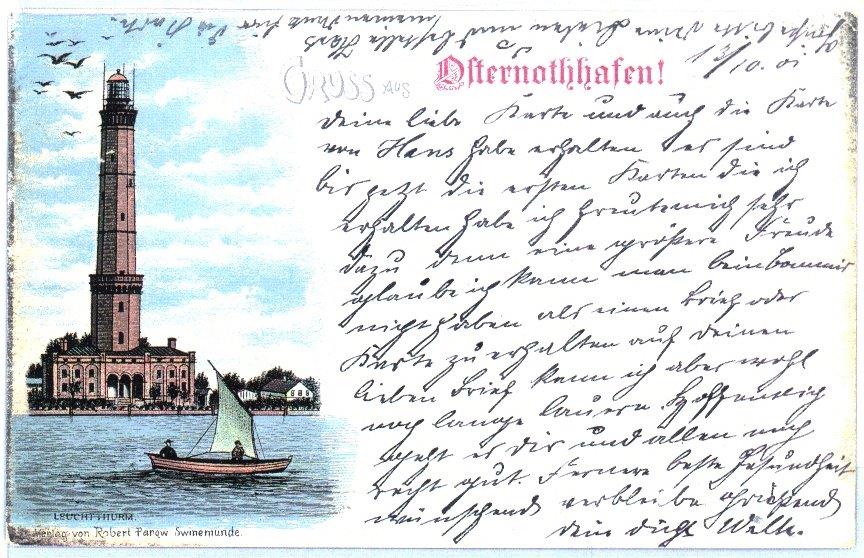 Gruss aus
Osternothhafen!
13/10.01
Deine liebe Karte und auch die Karte
von Hans habe erhalten es sind
bis jetzt die ersten Karten die ich
erhalten habe ich freute mich sehr
dazu denn eine größere Freude
glaube ich kann man beim
nicht haben als einen Brief oder
Karte zu erhalten auf deinen
lieben Brief kann ich aber wohl
noch lange lauern. Hoffentlich
geht es dir und allen noch
recht gut. Fernere beste Gesundheit
wünschend verbleibe grüßend
dein
LEUCHTTHURM.
Verlag von Robert Parow Swinemünde.